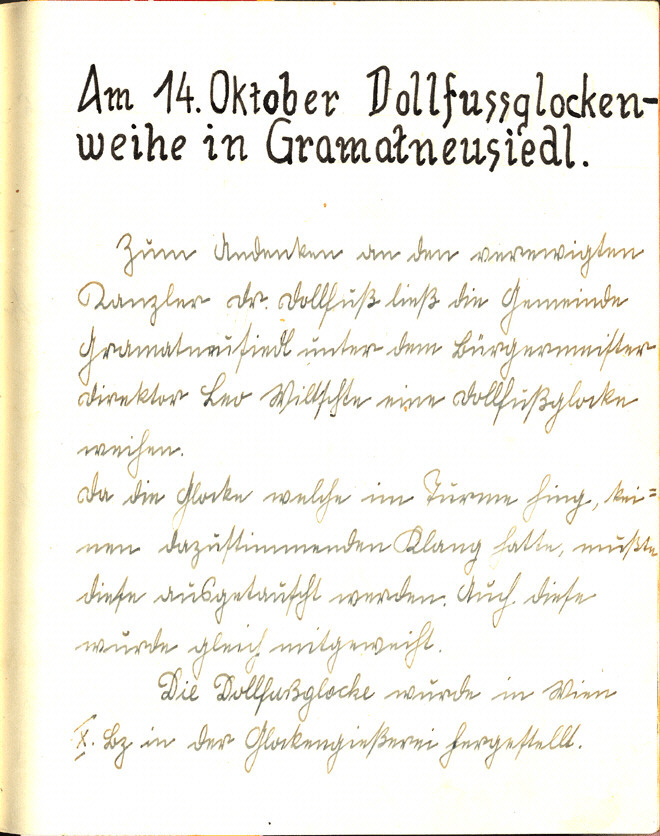 Am 14. Oktober Dollfussglocken-
weihe in Gramatneusiedl.
Zum Andenken an den verewigten
Kanzler Dr. Dollfuß ließ die Gemeinde
Gramatneusiedl unter dem Bürgermeister
Direktor Leo Wiltschke eine Dollfußglocke
weihen.
Da die Glocke welche im Turme hing, kei=
nen dazustimmenden Klang hatte, mußte
diese ausgetauscht werden. Auch diese
wurde gleich mitgeweiht.
Die Dollfußglocke wurde in Wien
X. Bz in der Glockengießerei hergestellt.